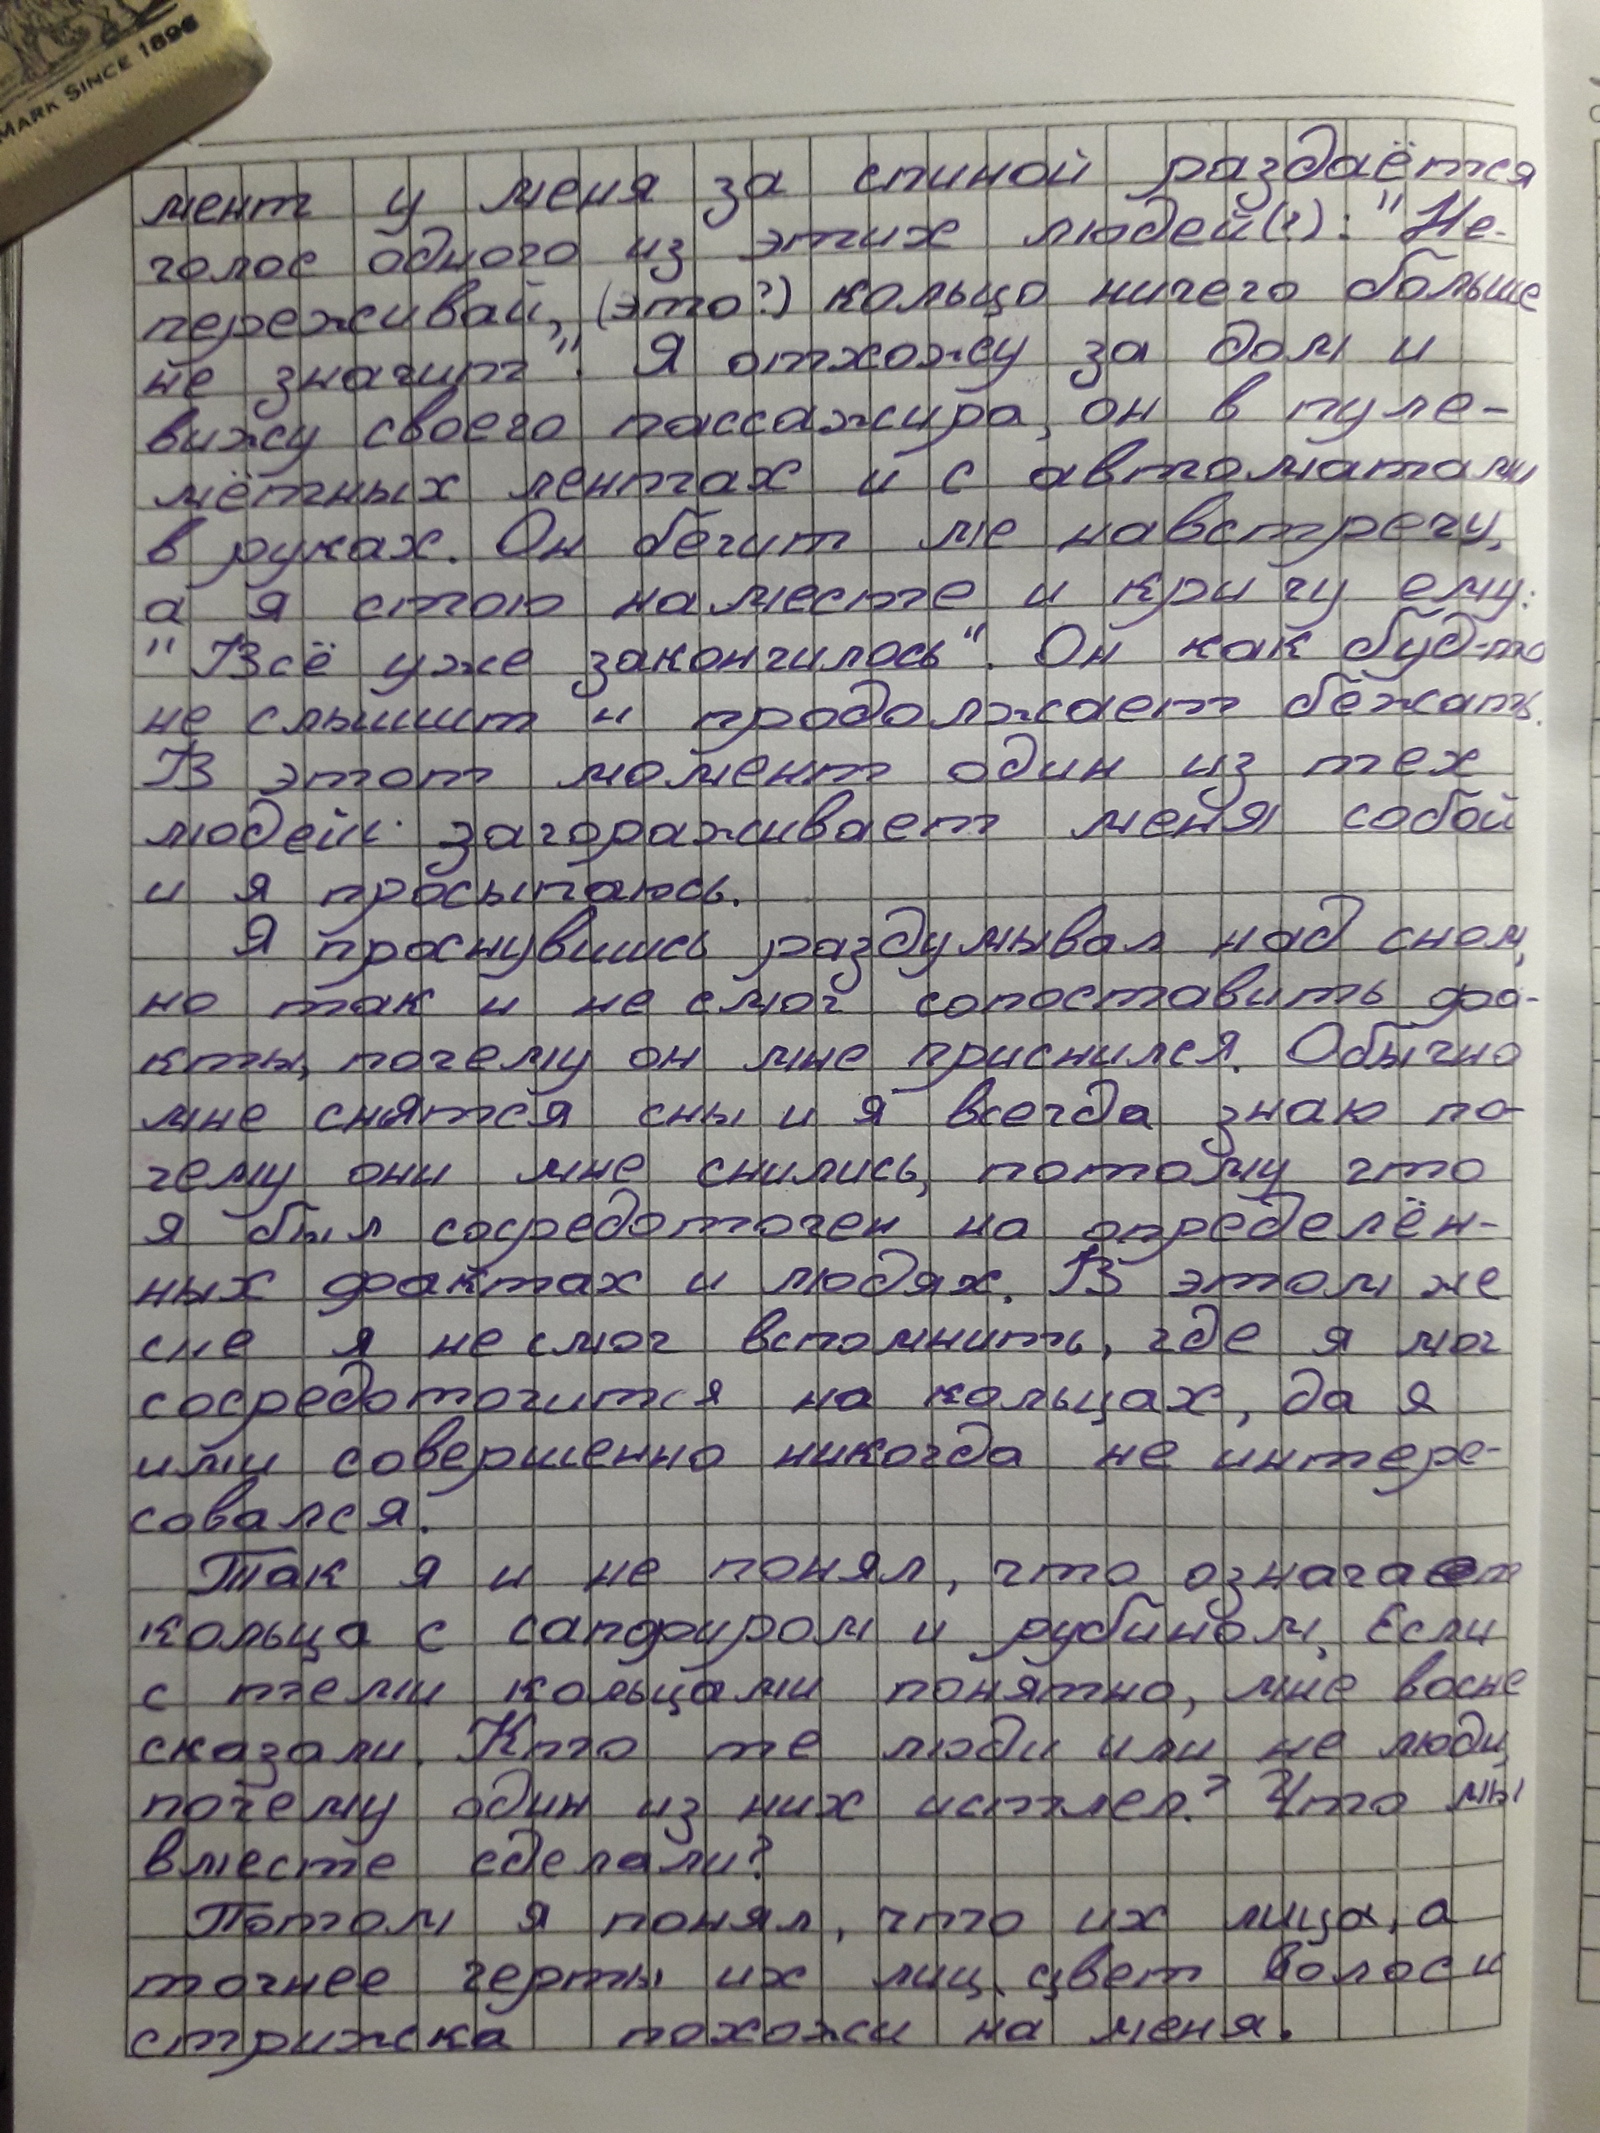 MARK SINCE 1896
мент у меня за спиной раздаётся
голос одного из этих людей(?): "Не
переживай, (это?) кольцо ничего больше
не значит". Я отхожу за дом и
вижу своего пассажира, он в пуле-
мётных лентах и с автоматами
в руках. Он бегит мне навстречу,
а я стою на месте и кричу ему:
"Всё уже закончилось". Он как буд-то
не слышит и продолжает бежать.
В этот момент один из тех
людей загораживает меня собой
и я просыпаюсь.
Я проснувшись раздумывал над сном,
но так и не смог сопоставить фа-
кты, почему он мне приснился. Обычно
мне снятся сны и я всегда знаю по-
чему они мне снились, потому что
я был сосредоточен на определён-
ных фактах и людях. В этом же
сне я не смог вспомнить, где я мог
сосредоточится на кольцах, да я
ими совершенно никогда не интере-
совался.
Так я и не понял, что означает
кольца с сапфиром и рубином. Если
с теми кольцами понятно, мне во сне
сказали. Кто те люди или не люди,
почему один из них истлел? Что мы
вместе сделали?
Потом я понял, что их лица, а
точнее черты их лиц, цвет волос и
стрижка похожи на меня.